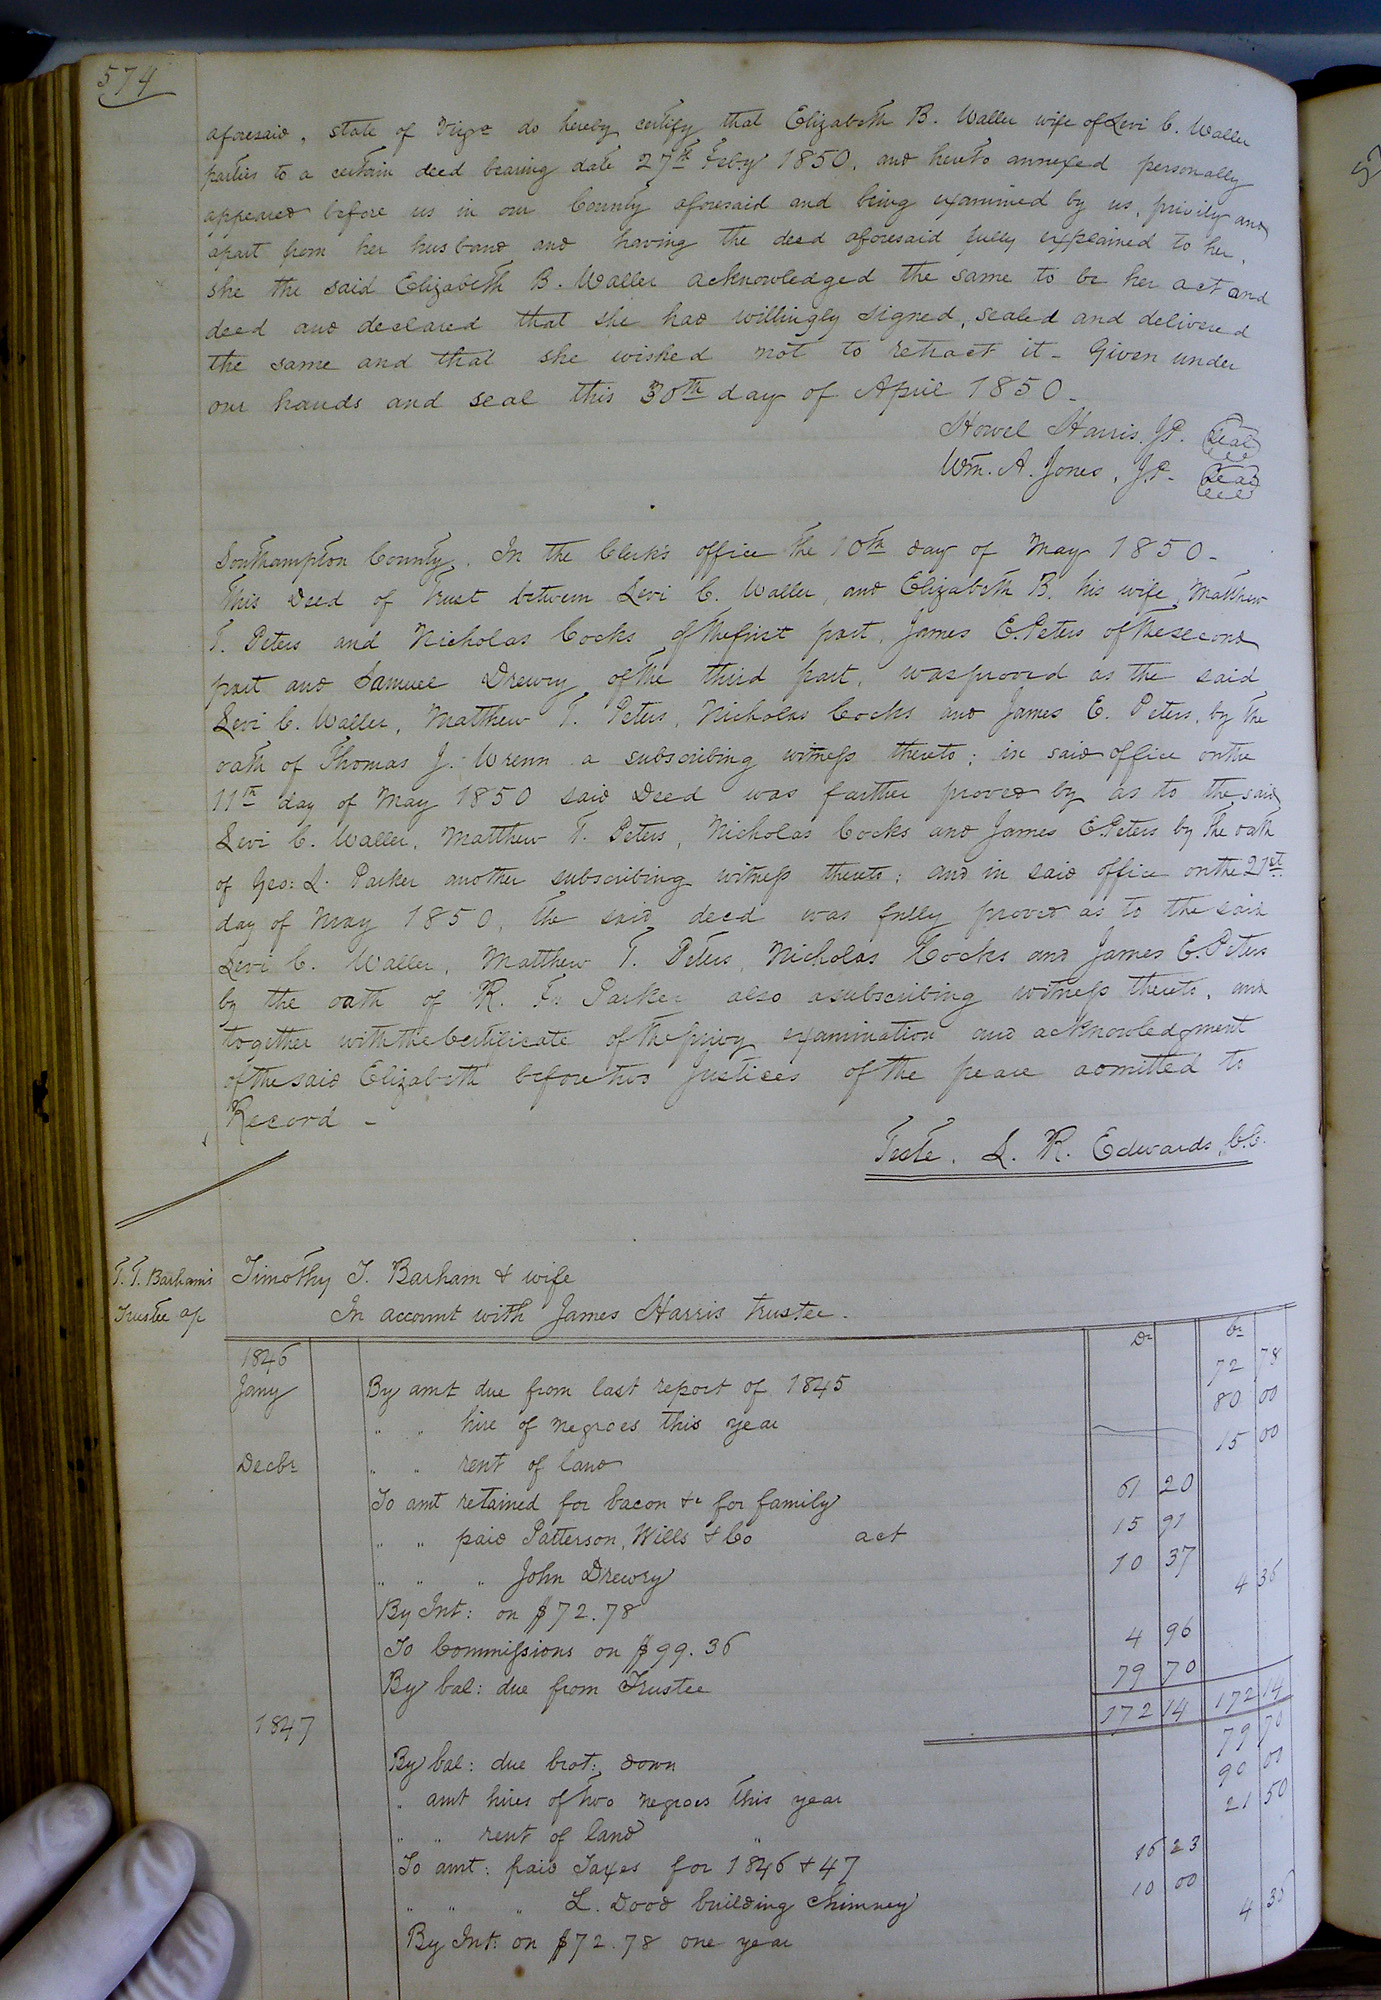 574
aforesaid, state of Virga do hereby certify that Elizabeth B. Waller wife of Levi C. Waller
parties to a certain deed bearing date 27th Feby 1850, and hereto annexed personally
appeared before us in our County aforesaid and being examined by us, privily and
apart from her husband and having the deed aforesaid fully explained to her,
she the said Elizabeth B. Waller acknowledged the same to be her act and
deed and declared that she had willingly signed, sealed and delivered
the same and that she wished not to retract it - Given under
our hands and seal this 30th day of April 1850 -
Howel Harris, J.P. Seal
Wm. A. Jones, J.P. Seal
Southampton County. In the Clerk's office the 10th day of May 1850 -
This Deed of Trust between Levi C. Waller, and Elizabeth B. his wife, Matthew
T. Peters and Nicholas Cocks of the first part, James E. Peters of the second
part and Samuel Drewry of the third part, was proved as the said
Levi C. Waller, Matthew T. Peters, Nicholas Cocks and James E. Peters, by the
oath of Thomas J. Wrenn a subscribing witness thereto; in said office on the
11th day of May 1850 said Deed was farther proved by as to the said
Levi C. Waller, Matthew T. Peters, Nicholas Cocks and James E. Peters by the oath
of Geo: L. Parker another subscribing witness thereto; and in said office on the 21st
day of May 1850, the said deed was fully proved as to the said
Levi C. Waller, Matthew T. Peters, Nicholas Cocks and James E. Peters
by the oath of R. Parker also a subscribing witness thereto, and
together with the Certificate of the privy examination and acknowledgment
of the said Elizabeth before two Justices of the peace admitted to
Record -
Teste. L. R. Edwards, C.C.
T. T. Barham's Timothy T. Barham & wife
Trustee a/c In account with James Harris trustee.
Dr Cr
1846
Jany By amt due from last report of 1845 72 78
" " hire of negroes this year 80 00
Decbr " " rent of land 15 00
To amt retained for bacon &c for family 61 20
" " paid Patterson, Wills & Co act 15 91
" " " John Drewry 10 37
By Int: on $72.78 4 36
To Commissions on $99.36 4 96
By bal: due from Trustee 79 70
172 14 172 14
1847
By bal: due brot: down 79 70
" amt hires of two negroes this year 90 00
" " rent of land " 21 50
To amt: paid Taxes for 1846 & 47 16 23
" " " L. Dood building chimney 10 00
By Int: on $72.78 one year 4 36